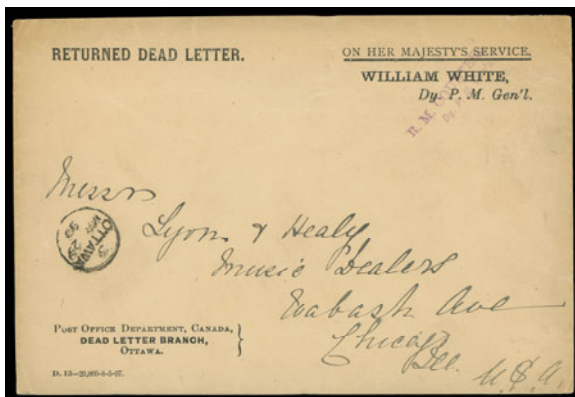 RETURNED DEAD LETTER.
ON HER MAJESTY'S SERVICE.
WILLIAM WHITE,
Dy. P. M. Gen'l.
R. M.
Messrs
Lyon & Healy
Music Dealers
Wabash Ave
Chicago
Ill.
U.S.A.
OTTAWA
POST OFFICE DEPARTMENT, CANADA,
DEAD LETTER BRANCH,
OTTAWA.
D. 13—20,000-8-5-97.